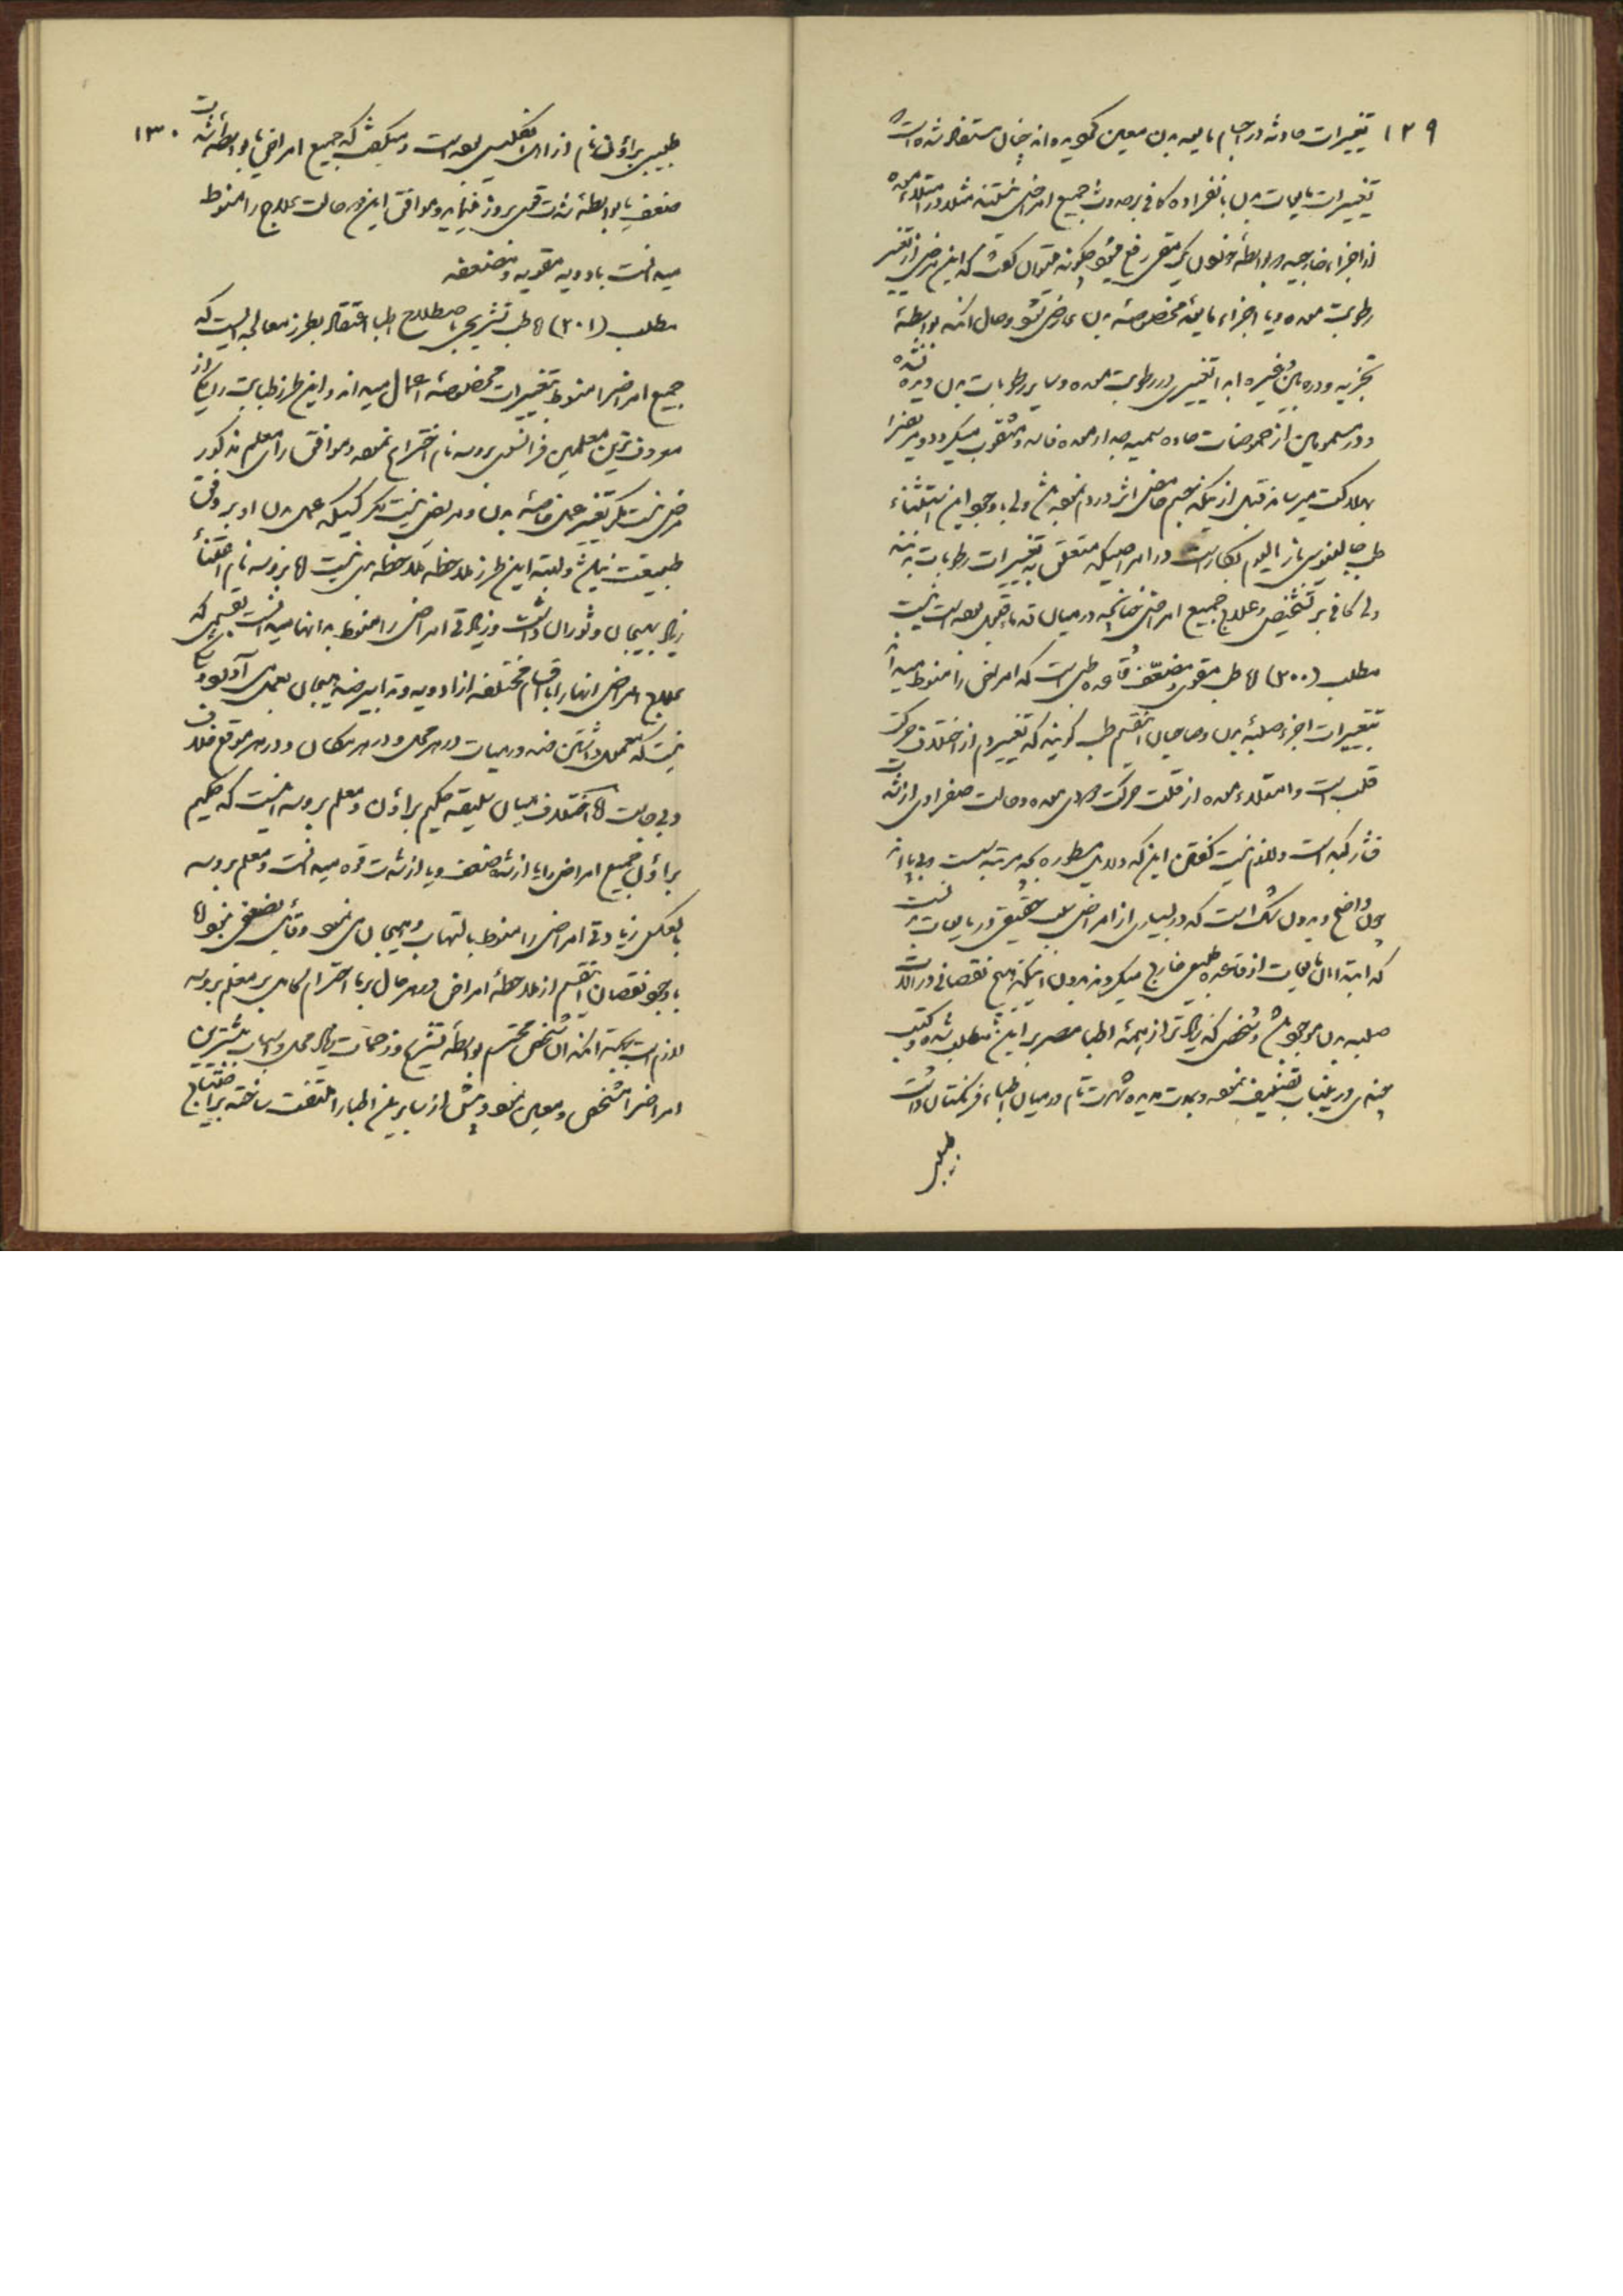 ۱۲۹
تغییرات حادثه در اجسام مایعه بدن معین کوچیده اند چنان مستفاد شده است
تغییرات مایعات بدن بانفراده کافی بر حدوث جمیع امراض نیستند مثلا در امتلاء معده
از اجزاء خارجیه و بواسطهٔ خوردن یک مقی رفع میشود چگونه میتوان گفت که این مرض از تغییر
رطوبت معده و یا اجزاء مایعهٔ مخصوصهٔ بدن عارض شود و حال آنکه بواسطهٔ
تجزیه و دره بین و غیره ابدا تغییری در رطوبت معده و سایر رطوبات بدن دیده نشده
و در مسمومین از حموضات حاده سمیه جدار معده فاسد و مثقوب میگردد و مریض را
بهلاکت میرساند قبل از آنکه جسم حامض اثر در دم نموده باشد ولی با وجود این استثناء
طب جالینوسی تا الیوم بکار است در امراضیکه متعلق به تغییرات رطوبات بدنند
ولی کافی بر تشخیص و علاج جمیع امراض چنانچه در میان قدماء معمول بوده است نیست
مطلب (۲۰۰) اما طب مقوی و مضعف قاعده طبی است که امراض را منوط میداند
بتغییرات اجزاء صلبهٔ بدن و صاحبان این قسم طب گویند که تغییر دم از اختلاف حرکت
قلب است و امتلاء معده از قلت حرکت معده و حالت صفراوی از شدت
فشار کبد است و لازم نیست گفتن این که دلایل مسطوره بچه مرتبه سست و بی پا اند
چون واضح و بدون شک است که در بسیاری از امراض سبب حقیقی در مایعات بدنست
که ابتدا آن مایعات از قاعده طبیعی خارج میگردند بدون اینکه هیچ نقصانی در آلات
صلبه بدن موجود باشد و شخصی که زیادتر از همهٔ اطبا مصر بر این مطلب شده و کتب
چندی در این باب تصنیف نموده و بمدت مدیده شهرت تام در میان اطباء فرنگستان داشت
طبیبی
۱۳۰
طبیبی براؤن نام از اهل انگلیس بوده است و میگفت که جمیع امراض یا بواسطه شدت
ضعف یا بواسطهٔ شدت قوی بروز مینماید و موافق این دو حالت علاج را منوط
میدانست بادویه مقویه و مضعفه
مطلب (۲۰۱) اما طب تشریحی باصطلاح اطبا اعتقاد بطرز معالجه ایست که
جمیع امراض را منوط بتغییرات مخصوصهٔ اعمال میداند و این طرز طبابت را یکی از
معروف ترین معلمین فرانسوی بروسه نام اختراع نموده و موافق رای معلم مذکور
مرض نیست مگر تغییر عمل خاصهٔ بدن و مریض نیست مگر کسیکه عمل بدن او بر وفق
طبیعت نباشد و البته این طرز ملاحظه ملاحظه بدی نیست اما بروسه نام اعتنای
زیاد بهیجان و ثوران داشت و زیادتی امراض را منوط به آنها میدانست بقسمی که
علاج امراض آنها را باقسام مختلفه از ادویه و تدابیر ضد هیجان بعمل می آورد و شکی
نیست که معمول داشتن ضد در میان در هر محل و در هر مکان و در هر موقع خلاف
و بی جاست اما اختلاف میان سلیقه حکیم براؤن و معلم بروسه اینست که حکیم
براؤن جمیع امراض را یا از شدت ضعف و یا از شدت قوه میدانست و معلم بروسه
بالعکس زیادتی امراض را منوط بالتهاب و هیجان می نمود و قائل بضعفی نبود اما
با وجود نقصان این قسم از ملاحظهٔ امراض در هر حال بر ما احترام کامل بر معلم بروسه
لازم است بجهت آنکه آن شخص محترم بواسطهٔ تشریح و زحمات زیاد محل و اسباب بیشترین
امراض را مشخص و معین نمود و پیش از سایرین اطبا را ملتفت ساخته بر احتیاج